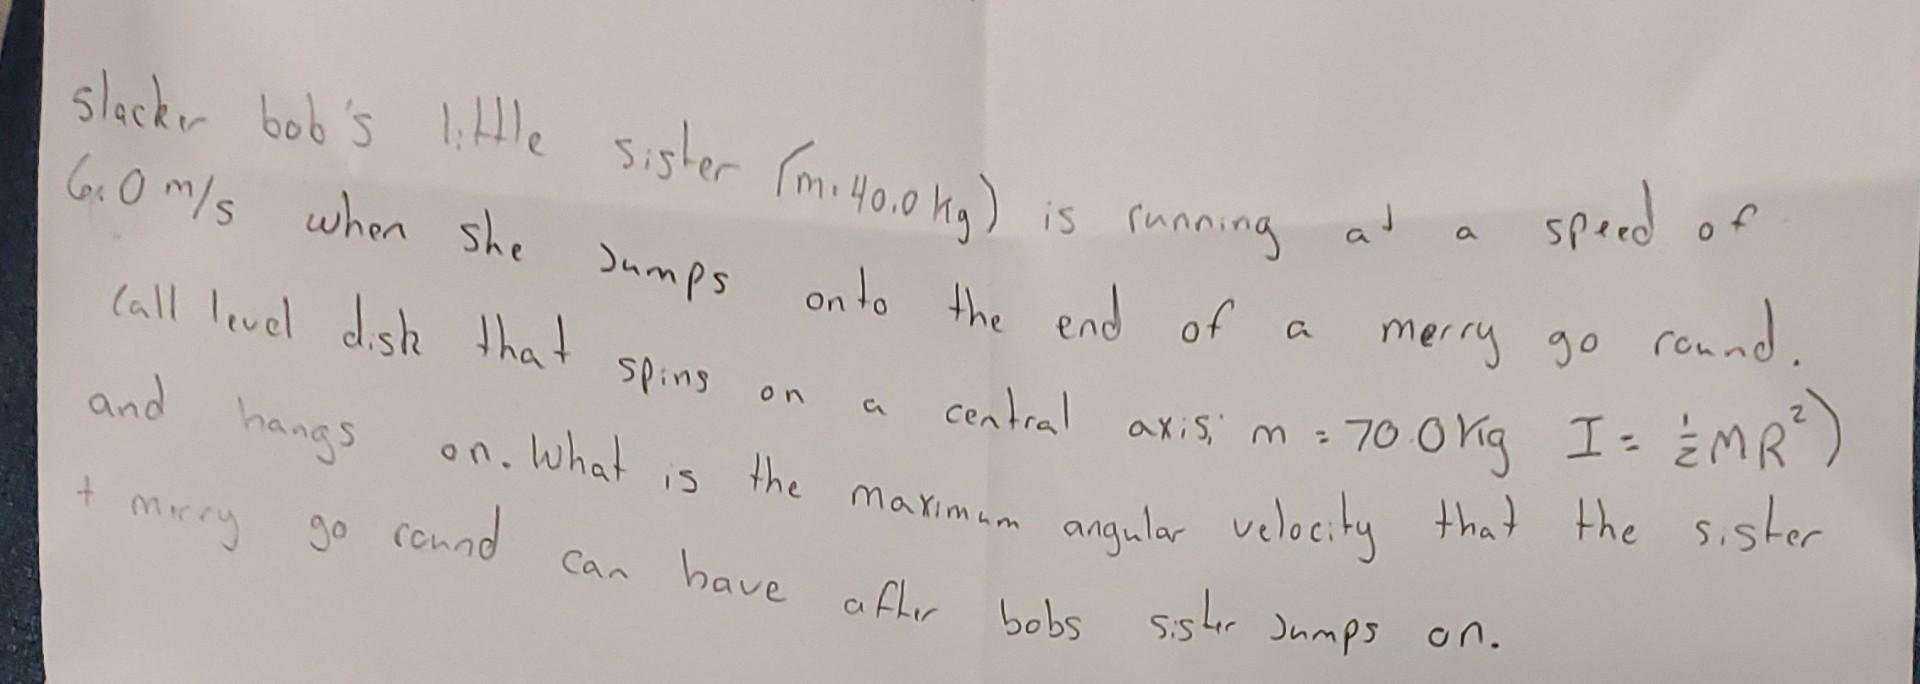 slacker bob's little sister (m: 40.0 kg) is running at a speed of
6.0 m/s when she jumps onto the end of a merry go round.
(all level disk that spins on a central axis; m = 70.0 kg I = ½MR²)
and hangs on. What is the maximum angular velocity that the sister
+ merry go round can have after bobs sister jumps on.